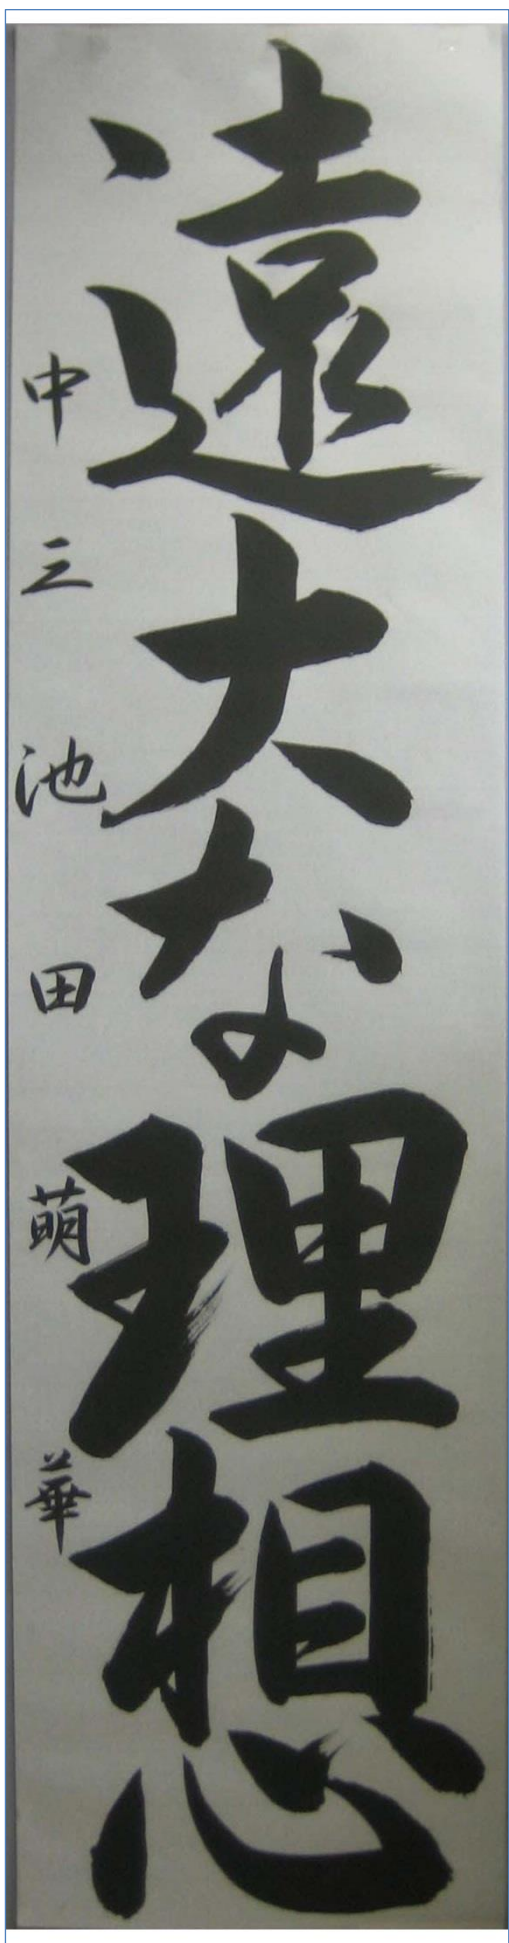 遠大な理想
中三 池田萌華